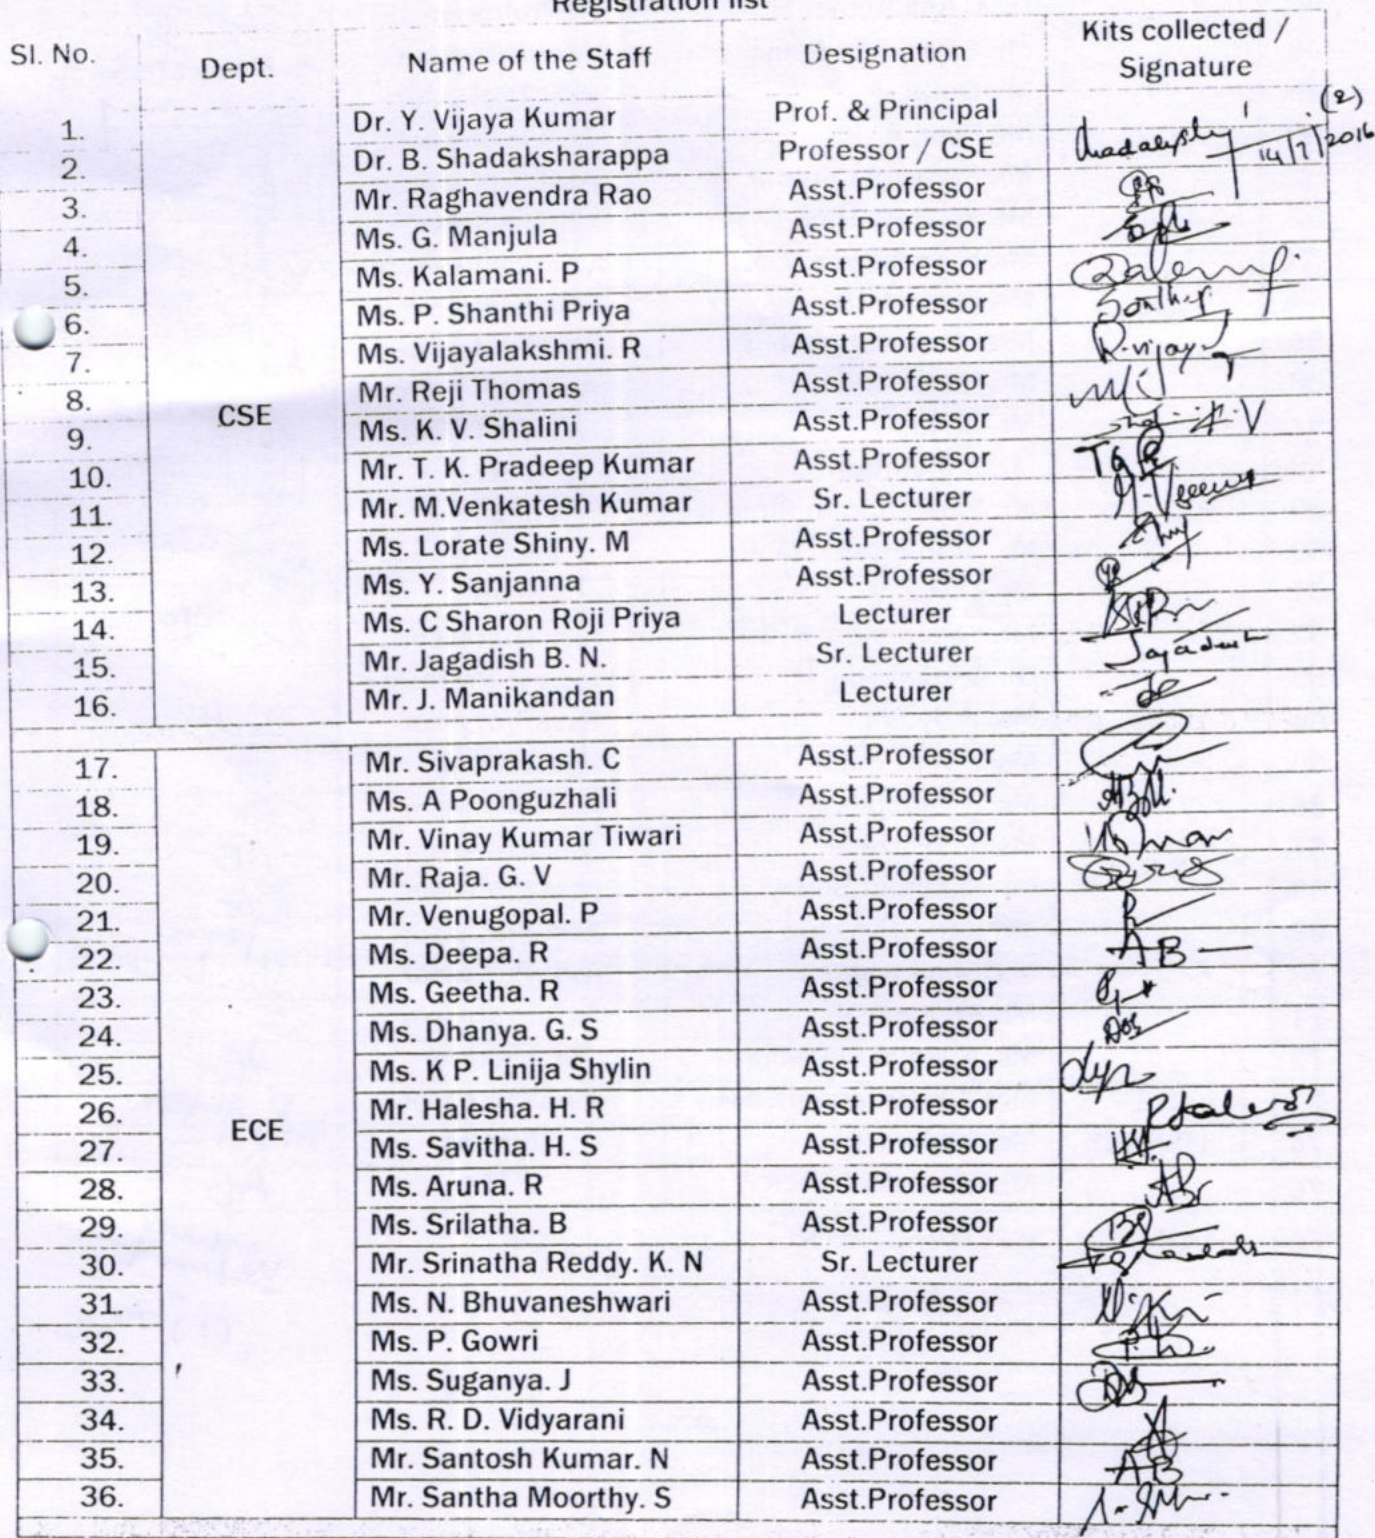 Registration list
Sl. No. Dept. Name of the Staff Designation Kits collected / Signature
1. Dr. Y. Vijaya Kumar Prof. & Principal (2)
2 Dr. B. Shadaksharappa Professor / CSE 14/7/2016
3. Mr. Raghavendra Rao Asst.Professor
4. Ms. G. Manjula Asst.Professor
5. Ms. Kalamani. P Asst.Professor
6. Ms. P. Shanthi Priya Asst.Professor
7. Ms. Vijayalakshmi. R Asst.Professor R.vijay
8. Mr. Reji Thomas Asst.Professor
CSE
9. Ms. K. V. Shalini Asst.Professor
10. Mr. T. K. Pradeep Kumar Asst.Professor
11. Mr. M.Venkatesh Kumar Sr. Lecturer
12. Ms. Lorate Shiny. M Asst.Professor
13. Ms. Y. Sanjanna Asst.Professor
14. Ms. C Sharon Roji Priya Lecturer
15. Mr. Jagadish B. N. Sr. Lecturer
16. Mr. J. Manikandan Lecturer
17. Mr. Sivaprakash. C Asst.Professor
18. Ms. A Poonguzhali Asst.Professor
19. Mr. Vinay Kumar Tiwari Asst.Professor
20. Mr. Raja. G. V Asst.Professor
21. Mr. Venugopal. P Asst.Professor
22. Ms. Deepa. R Asst.Professor AB
23. Ms. Geetha. R Asst.Professor
24. Ms. Dhanya. G. S Asst.Professor
25. Ms. K P. Linija Shylin Asst.Professor
26. Mr. Halesha. H. R Asst.Professor
ECE
27. Ms. Savitha. H. S Asst.Professor
28. Ms. Aruna. R Asst.Professor
29. Ms. Srilatha. B Asst.Professor
30. Mr. Srinatha Reddy. K. N Sr. Lecturer
31. Ms. N. Bhuvaneshwari Asst.Professor
32. Ms. P. Gowri Asst.Professor
33. Ms. Suganya. J Asst.Professor
34. Ms. R. D. Vidyarani Asst.Professor
35. Mr. Santosh Kumar. N Asst.Professor AB
36. Mr. Santha Moorthy. S Asst.Professor